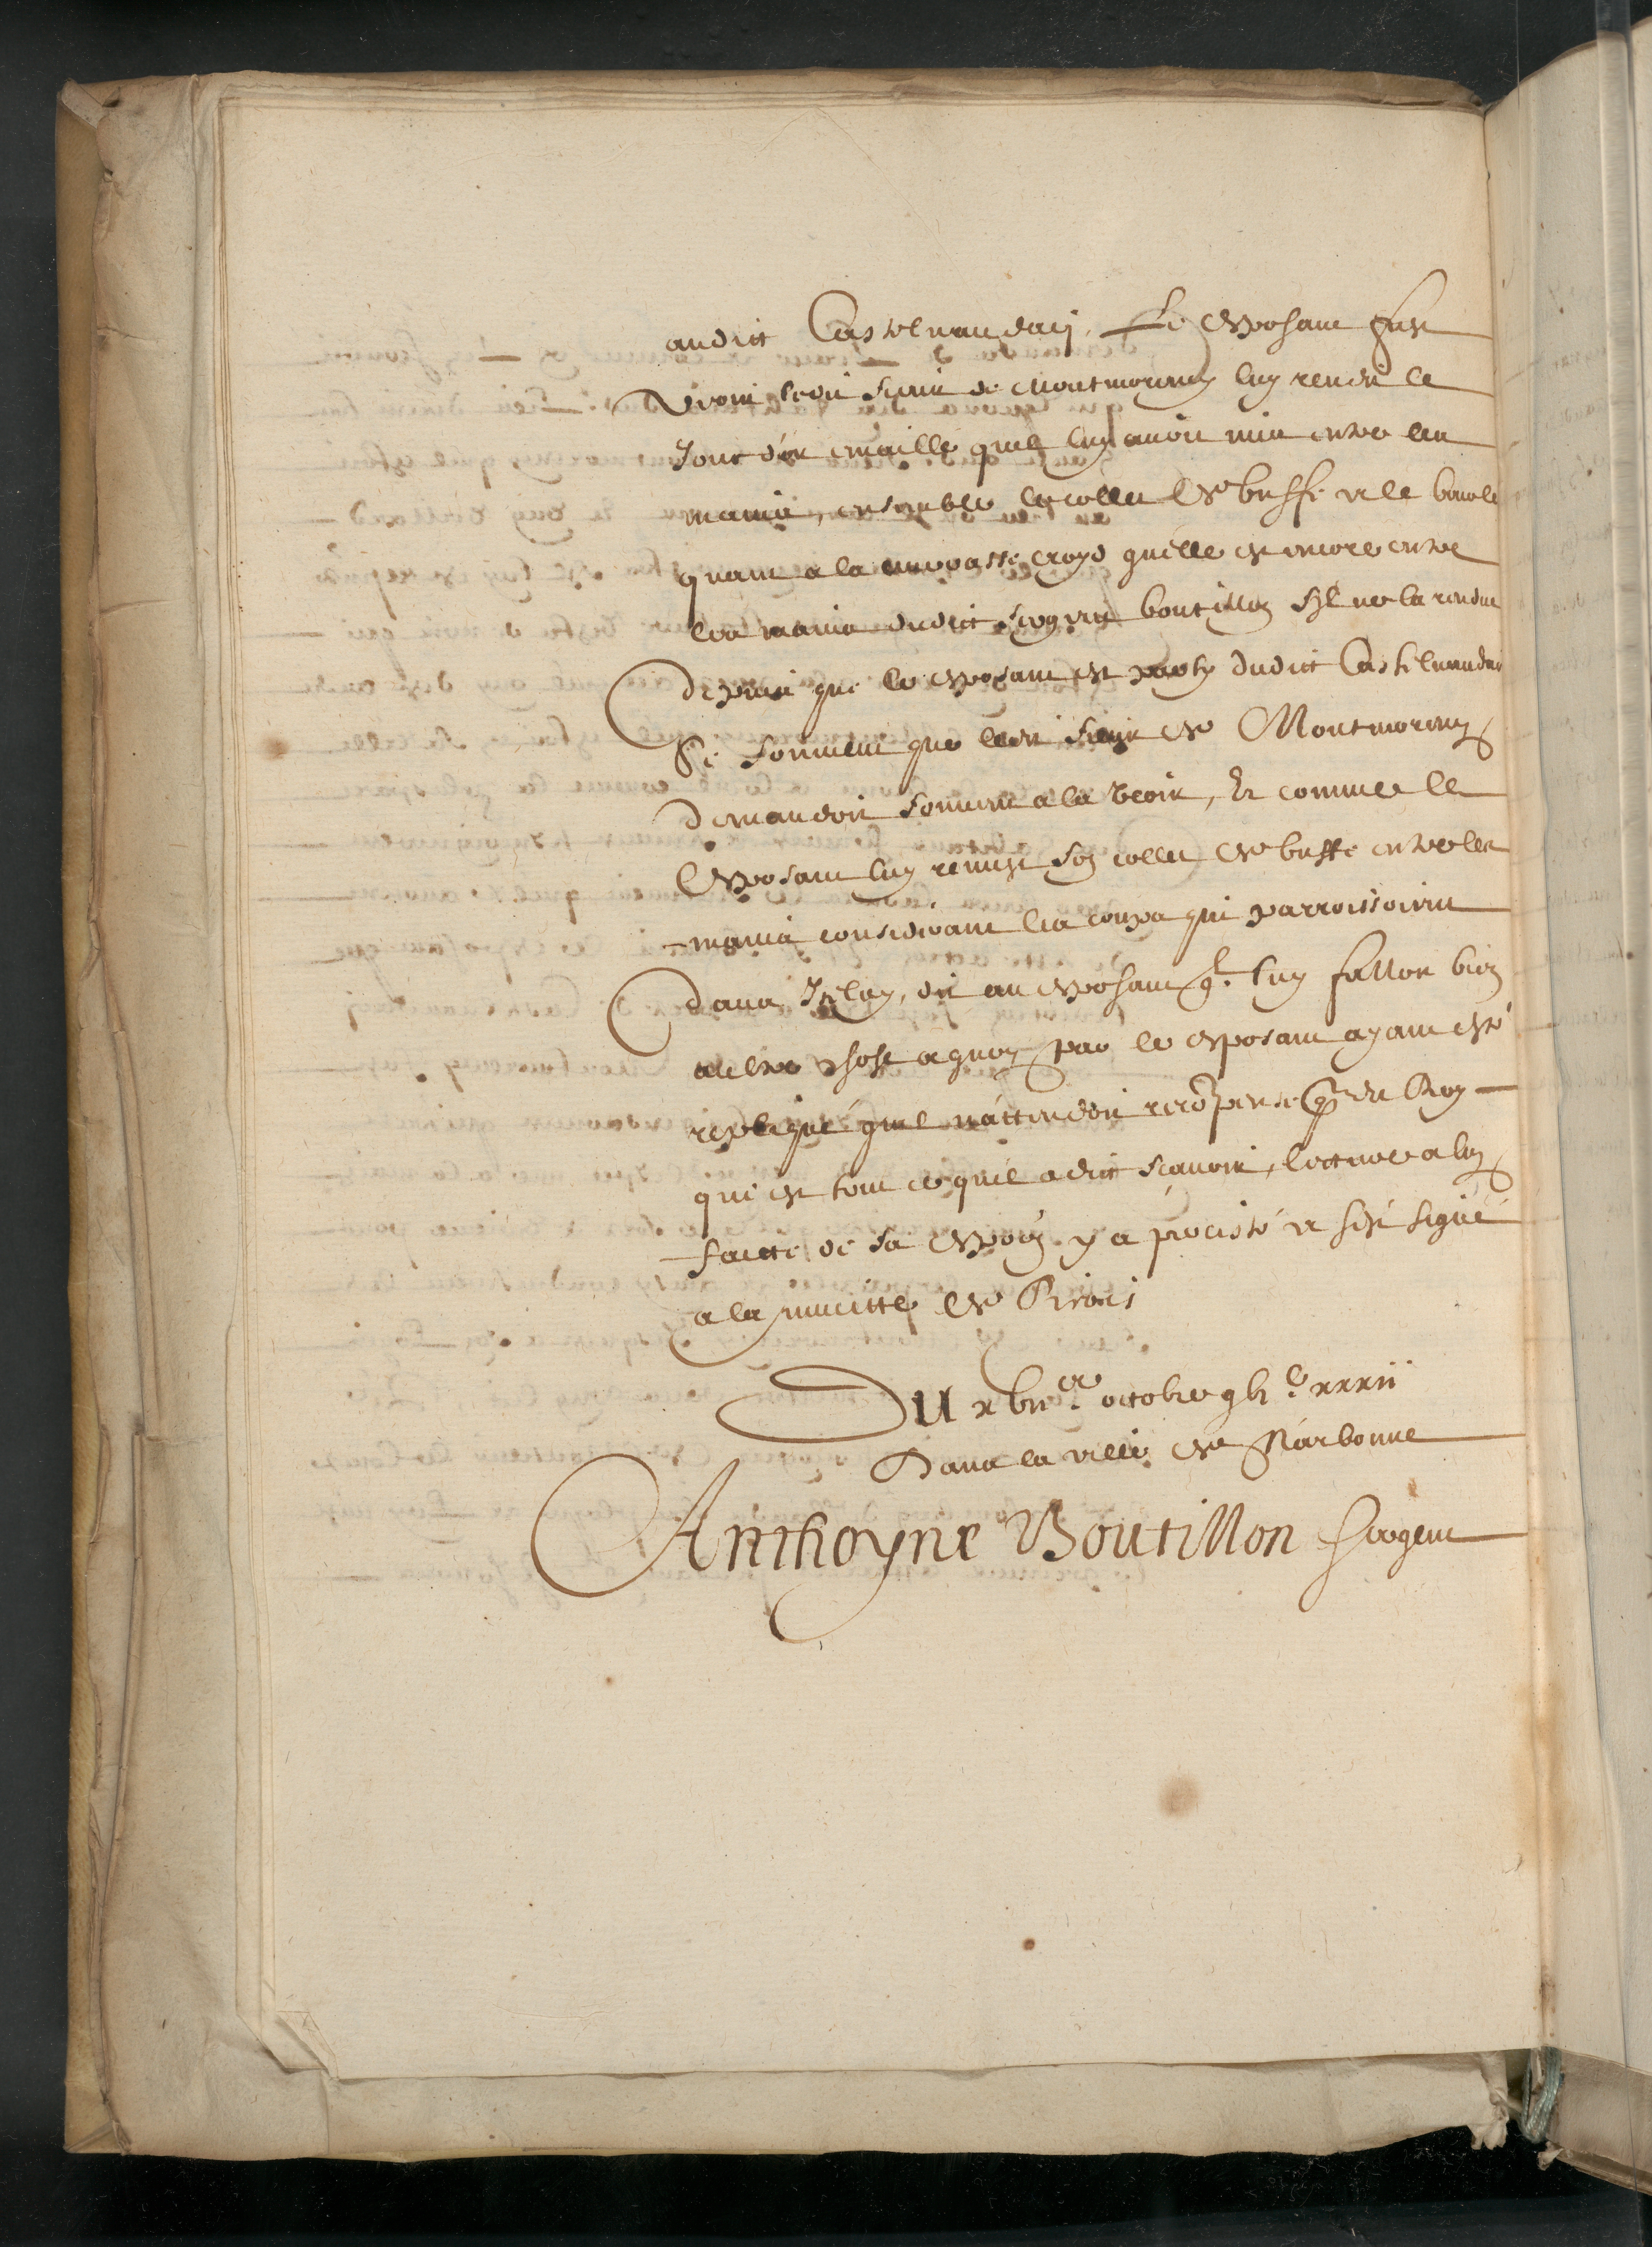 audict Castelnaudarj, Le exposant fust
Avoir ledit sieur de Montmorency luy rendit le
Jonc d'or emaillé quil luy avoit mis entre les
mains, ensemble le collet de buffe et le
quant a la croyt quelle est encore entre
les mains dudict sergent boutillon sil ne la rendue
depuis que le exposant est party dudict Castelnaudary
Se souvient que ledit sieur de Montmorency
demandoit souvent a la veoir, Et comme le
exposant luy remist son collet de buffe entre les
mains considerant les coups qui parroissoient
dans Iceluy, dit au exposant ql luy falloit bien
aultre chose a quoy par le exposant ayant esté
repliqué quil n'attendoit recõpense q du Roy
qui est tout ce quil a dict sçavoir, lecture a luy
faicte de sa expoõn y a precisté et sest signé
a la minutte de
Du octobre xxxii
Dans la ville de Narbonne
Anthoyne Boutillon sergent